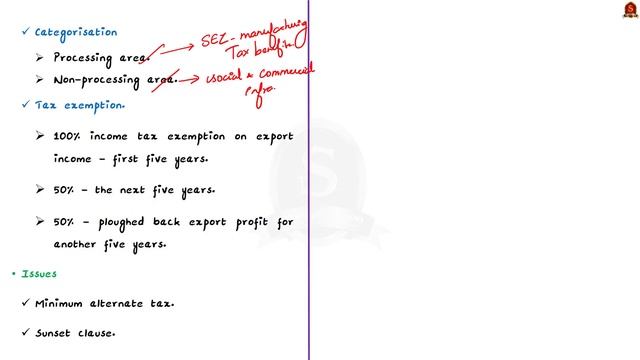 ✓ Categorisation
➢ Processing area.
SEZ - manufacturing
Tax benefits
➢ Non-processing area.
social & Commercial
Infra.
✓ Tax exemption.
➢ 100% income tax exemption on export
income – first five years.
➢ 50% – the next five years.
➢ 50% – ploughed back export profit for
another five years.
• Issues
✓ Minimum alternate tax.
✓ Sunset clause.
S